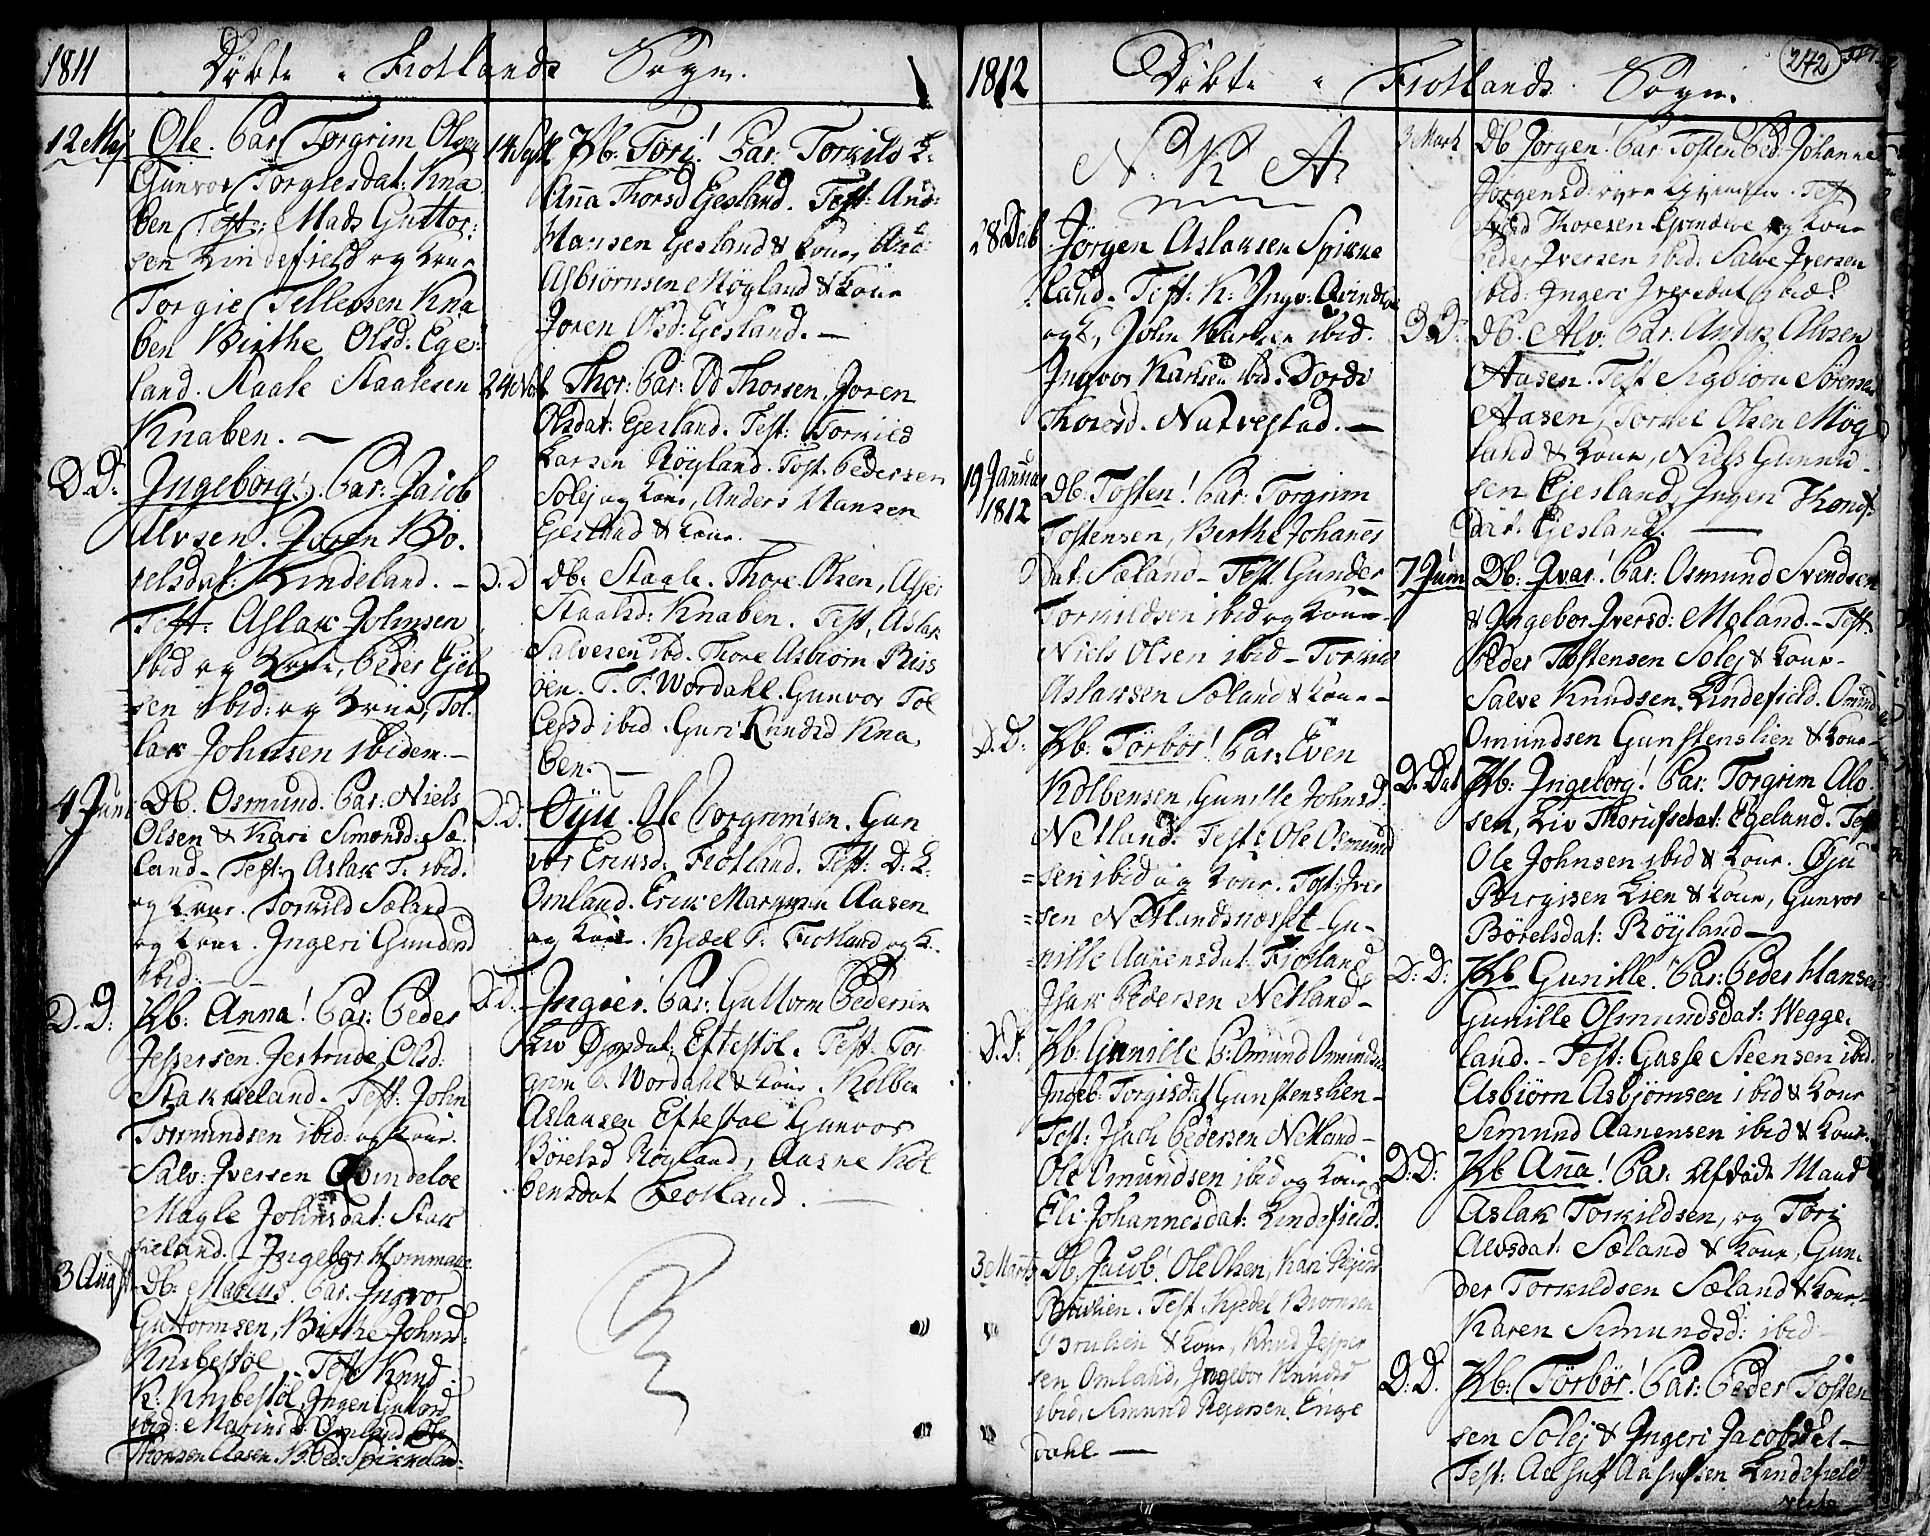 1811 Döbte i Fiotlands Sogn.
12 Maj Ole. Par. Torgrim Olsen
Gunvor Torgiesdat: Kna
ben Test: Mads Guttor:
sen Lindefield og Kone
Torgie Tellevsen Kna
ben Birthe Olsd. Ege:
land. Staale Staalesen
Knaben. —
D. D. Ingeborg! Par: Jacob
Alvsen. Joren Bo.
relsdat: Lindeland. —
Test: Aslak Johnsen
ibid og Kone, Peder
sen ibid: og Kone, Tol
lak Johnsen ibidem. —
4 Juni Db. Osmund. Par: Niels
Olsen & Kari Simonsd. Sæ
land. Test: Aslak T. ibid.
og Kone. Torkild Sæland
og Kone. Ingeri Gundersd
ibid: —
D. D: Hb: Anna! Par: Peder
Jessersen Jertrude Olsd:
Stakkeland. Test: John
Tormundsen ibid: og Kone.
Salv: Iversen Qvindeloe
Magle Johnsdat: Stak
keland. — Ingebor Homme
3 August Db: Marcus. Par. Ingvor
Guttormsen, Birthe Johnsd:
Knibestöl. Test Knud
K: Knibestöl, Ingen Guttord
ibid: Omland
Thorsen Aasen. Spikkeland:
14 Sept Hb: Töri! Par: Torkild L:
Anna Thorsd Egesland. Test: And:
Hansen Egesland & Kone, And:
Asbiörnsen Möyland & Kone
Joren Olsd: Egesland. —
24 Nov Thor: Par: Od Thorsen, Joren
Olsdat: Egesland. Test: Torkild
Larsen Röyland. Tost: Pedersen
Solej og Kone, Anders Hansen
Egesland & Kone.
D. D Db: Staale. Thore Olsen, Asse
Staalsd: Knaben. Test, Aslak
Salvesen ibd. Thore Asbiörn Riis
sen. T. T. Wordahl. Gunvor Tol
lefsd ibid. Guri Knudsd Kna,
ben. —
D. D. Öyu. Ole Torgrimsen. Gun
vor Eriksd: Fiotland. Test: D: L.
Omland. Erik Aasen
og Kone. Kjedel T. Fiotland og K.
D. D. Ingier. Par: Guttorm Pedersen
Liv Öyusdat: Eftestöl. Test: Tor
grim T. Wordahl & Kone. Kolben
Aslaksen Eftestöl Gunvor
Börelsd Röyland, Aasne Kol
bensdat Fiotland. —
1812 Döbte i Fiotlands Sogn. 242
N. K A.
28 Deb Jörgen Aslaksen Spikke
land. Test: K. Yngv: Qvindloe
og K, John Karlsen ibid.
Ingvor Karlsen ibid. Dorde
Thoresd. Natvestad. —
19 Januar 1812 Db: Tosten! Par: Torgrim
Tostensen, Berthe Johannes
Dat: Sæland — Test. Gunder
Torkildsen ibid og Kone —
Niels Olsen ibid — Torkild
Aslaksen Sæland & Kone —
D. D: Hb: Törbör! Par: Even
Kolbensen, Gunille Johnsd.
Netland. Test: Ole Osmund
sen ibid og Kone. Tost: Iver
sen Netlandsnæsset Gu-
nille Aanensdat: Fiotland
Isak Pedersen Netland —
D. D: Hb: Gunille P: Omund Omundsen
Ingeb: Torgisdat Gunstenslien —
Test: Isach Pedersen Netland —
Ole Omundsen ibid og Kone
Eli Johannesdat: Lindefield.
3 Marts Db, Jacob! Ole Olsen, Kari
Brulien. Test. Kjedel Biornsen
Brulien & Kone, Knud Jesper
sen Omland, Ingebor Knudsd
ibid, Simund Rejersen Enge
dahl —
3 Marts Db Jörgen! Par. Tosten Ped. Johanne
Jörgensd: Test
Thoresen Qvindloe og Kone
Peder Iversen ibid. Salve Iversen
ibid: Ingeri Iversdat ibid!
D. D: Db. Alv. Par. Anders Alvsen
Aasen. Test Sigbiörn Sörensen
Aasen, Torkel Olsen Möy
land & Kone, Niels Gunnu-
sen Egesland, Ingen
Dat. Egesland. —
7 Juni Db: Ivar! Par: Osmund Svendsen
& Ingebor Iversd: Moland. — Test:
Peder Tostensen Solej & Kone —
Salve Knudsen Lindefield. Omund
Omundsen Gunstenslien & Kone —
D. Dat Hb: Ingeborg! Par: Torgrim Alv
sen, Liv Egeland. Test
Ole Johnsen ibid & Kone. Öju
Birgisen Lien & Kone, Gunvor
Börelsdat: Röyland —
D: D: Hb Gunille. Par: Peder Hansen
Gunille Osmundsdat: Hegge.
land. — Test: Gasse Steensen ibid.
Asbiörn Asbjörnsen ibid & Kone
Simund Aanensen ibid & Kone.
D: D: Hb Anna! Par: Afdöde Mand
Aslak Torkildsen, og Töri
Alvsdat: Sæland & Kone, Gun
der Torkildsen Sæland & Kone.
Karen Simundsd: ibid —
D: D. Hb: Törbör! Par: Peder Tosten
sen Solej & Ingeri Jacobsdat —
Test: Lindefield